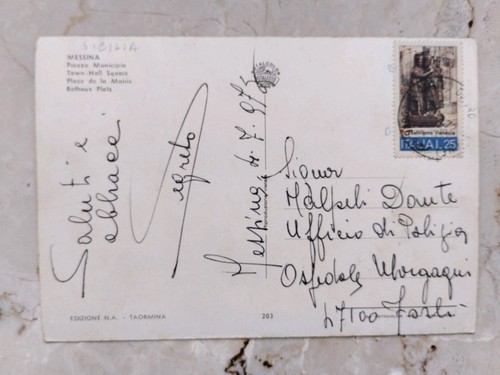 SICILIA
MESSINA
Piazza Municipio
Town-Hall Square
Place de la Mairie
Rathaus Platz
Saluti e
abbracci
Messina
7. 973
Signor
Malpeli Dante
Ufficio di Polizia
Ospedale Morgagni
47100 Forlì
Salviamo Venezia
ITALIA L. 25
EDIZIONE N.A. - TAORMINA
203